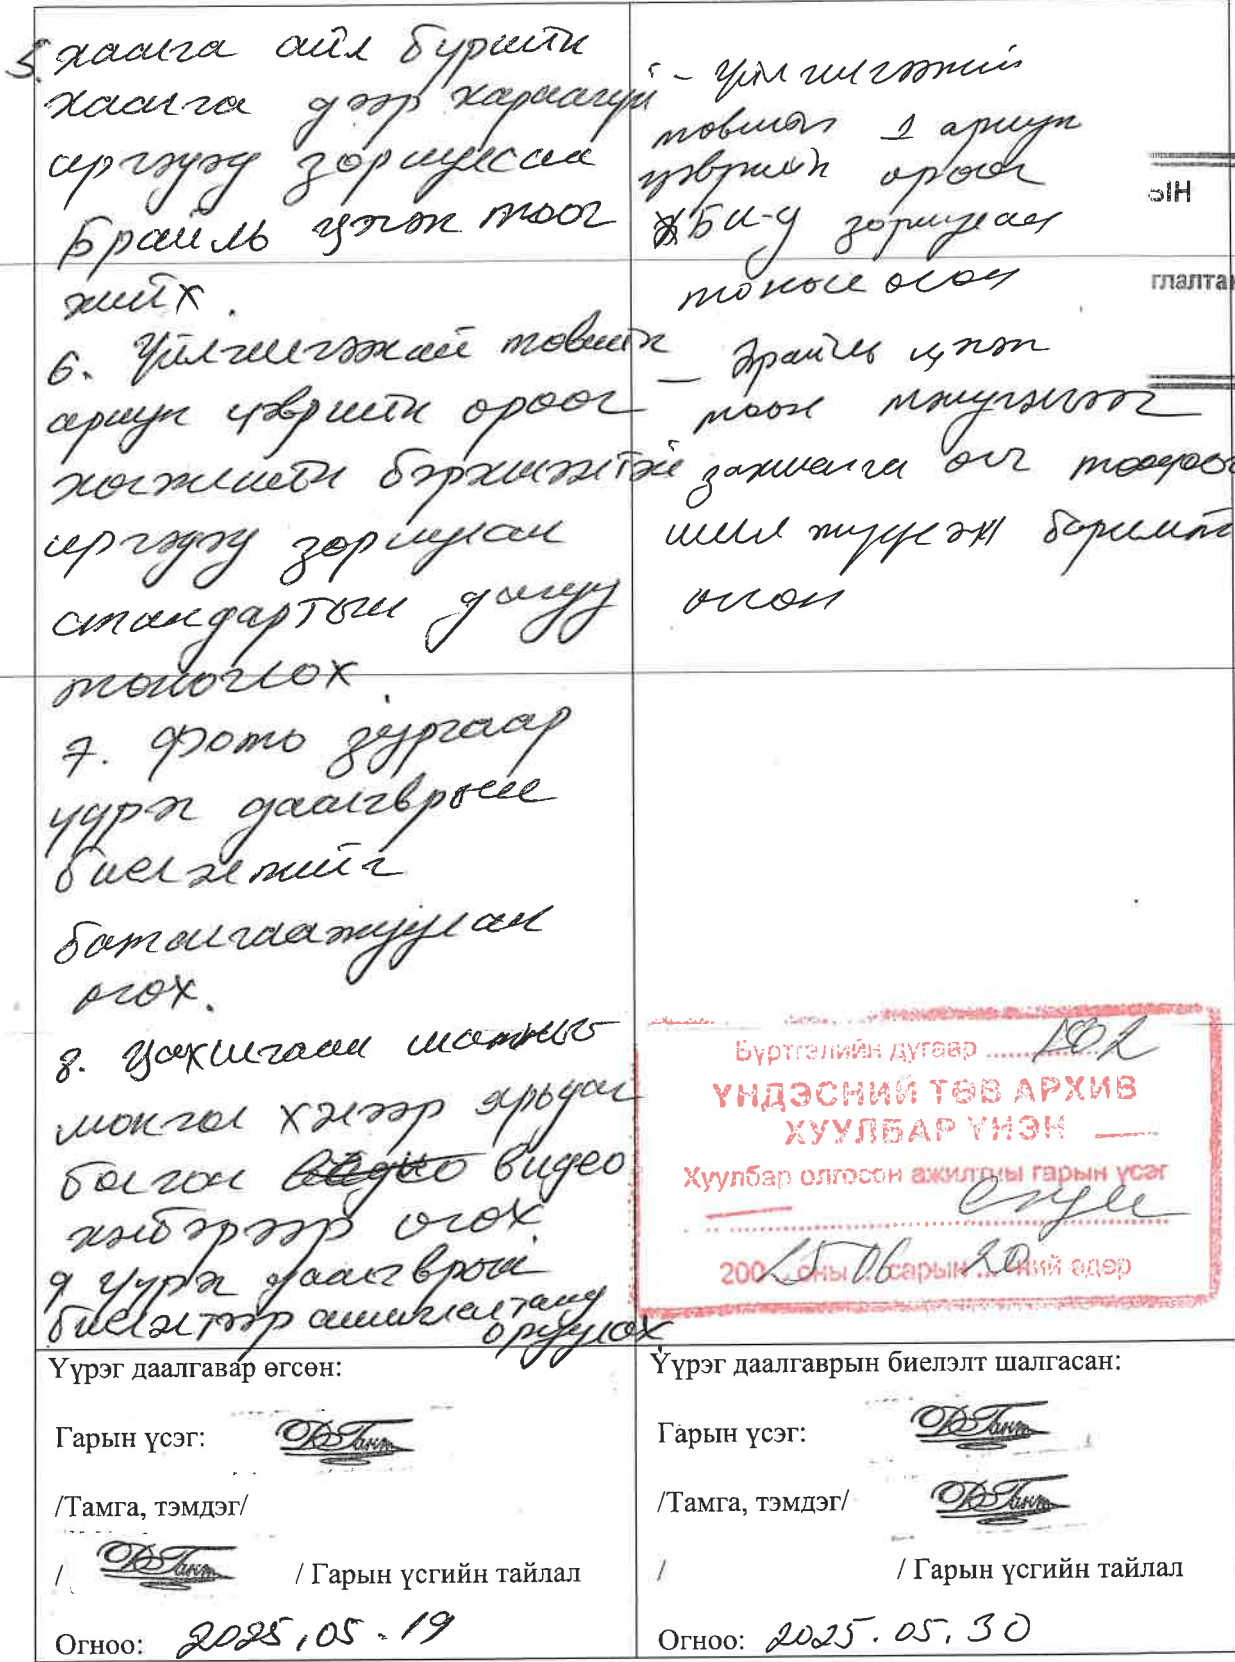 5. хаалга айл бүрийн
хаалга дээр хараагүй
иргэдэд зориулсан
Брайль үсэг тоог
хийх.
6. Үйлчилгээний төвийн
ариун цэврийн өрөөг
хөгжлийн бэрхшээлтэй
иргэдэд зориулсан
стандартын дагуу
тоноглох.
7. Фото зургаар
үүрэг даалгаврын
биелэлтийг
баталгаажуулан
өгөх.
8. Цахилгаан шатыг
монгол хэлээр ярьдаг
болгон видео
хэлбэрээр өгөх
9 үүрэг даалгаврын
биелэлтээр ашиглалтанд
оруулах
- Үйлчилгээний
төвийн 1 ариун
цэврийн өрөөг
ХБИ-д зориулан
тоносон
- Брайль үсэг
тоон тэмдэгээг
захиалга өгч
шилжүүлэж баримт
өгсөн
ЫН
глалтан
Бүртгэлийн дугаар ........ 102
ҮНДЭСНИЙ ТӨВ АРХИВ
ХУУЛБАР ҮНЭН
Хуулбар олгосон ажилтны гарын үсэг
200 25 оны 06 сарын 20 ний өдөр
Үүрэг даалгавар өгсөн:
Гарын үсэг:
/Тамга, тэмдэг/
/ / Гарын үсгийн тайлал
Огноо: 2025.05.19
Үүрэг даалгаврын биелэлт шалгасан:
Гарын үсэг:
/Тамга, тэмдэг/
/ / Гарын үсгийн тайлал
Огноо: 2025.05.30